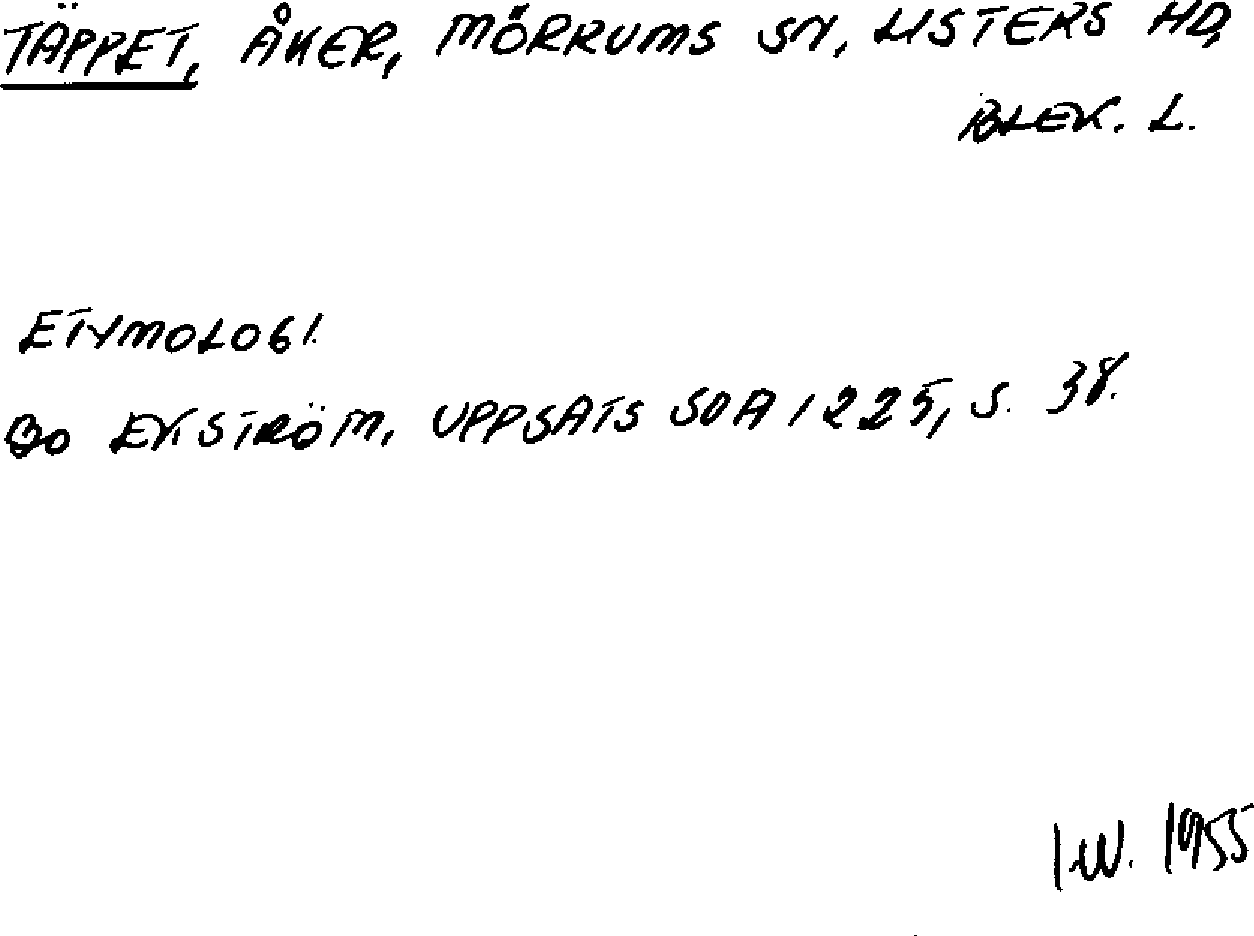 TÄPPET, ÅKER, MÖRRUMS SN, LISTERS HD,
BLEK. L.
ETYMOLOGI.
Bo EKSTRÖM, UPPSATS SOA 1225, S. 38.
I.W. 1955